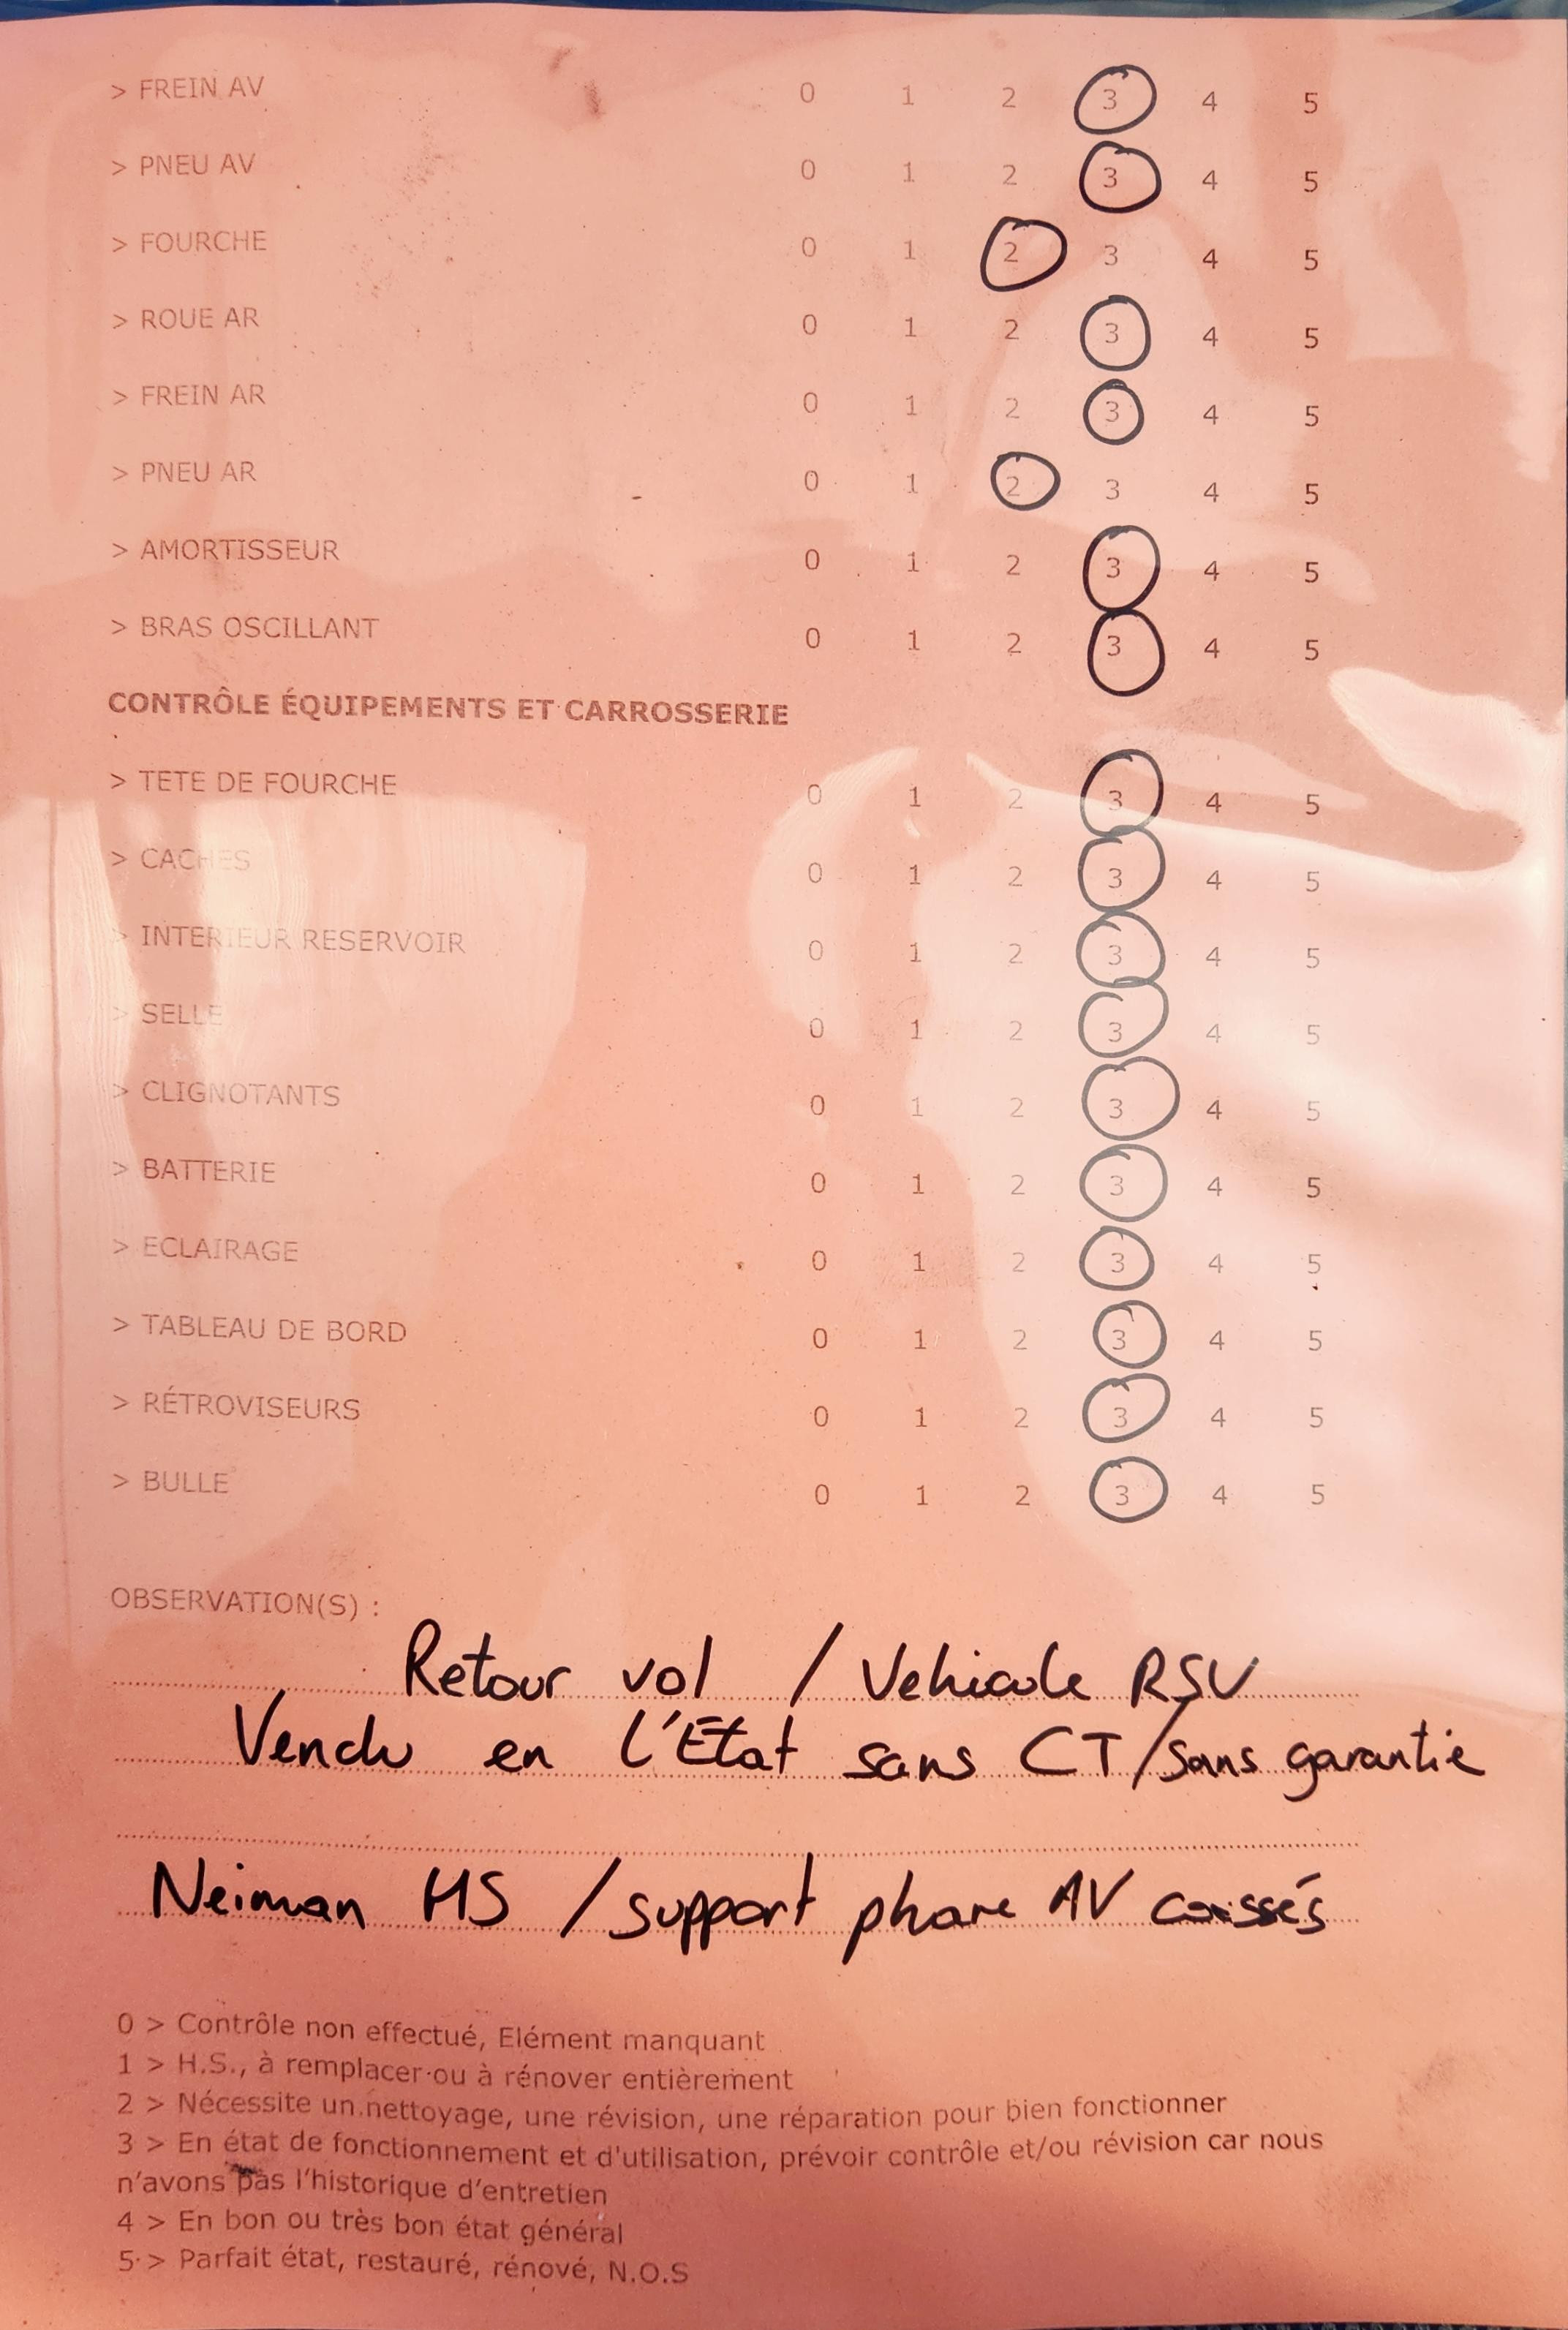 > FREIN AV 0 1 2 3 4 5
> PNEU AV 0 1 2 3 4 5
> FOURCHE 0 1 2 3 4 5
> ROUE AR 0 1 2 3 4 5
> FREIN AR 0 1 2 3 4 5
> PNEU AR 0 1 2 3 4 5
> AMORTISSEUR 0 1 2 3 4 5
> BRAS OSCILLANT 0 1 2 3 4 5
CONTRÔLE ÉQUIPEMENTS ET CARROSSERIE
> TETE DE FOURCHE 0 1 2 3 4 5
> CACHES 0 1 2 3 4 5
> INTERIEUR RESERVOIR 0 1 2 3 4 5
> SELLE 0 1 2 3 4 5
> CLIGNOTANTS 0 1 2 3 4 5
> BATTERIE 0 1 2 3 4 5
> ECLAIRAGE 0 1 2 3 4 5
> TABLEAU DE BORD 0 1 2 3 4 5
> RÉTROVISEURS 0 1 2 3 4 5
> BULLE 0 1 2 3 4 5
OBSERVATION(S) :
Retour vol / Vehicule RSV
Vendu en l'Etat sans CT/sans garantie
Neiman HS / support phare AV cassés
0 > Contrôle non effectué, Elément manquant
1 > H.S., à remplacer ou à rénover entièrement
2 > Nécessite un nettoyage, une révision, une réparation pour bien fonctionner
3 > En état de fonctionnement et d'utilisation, prévoir contrôle et/ou révision car nous
n'avons pas l'historique d'entretien
4 > En bon ou très bon état général
5 > Parfait état, restauré, rénové, N.O.S